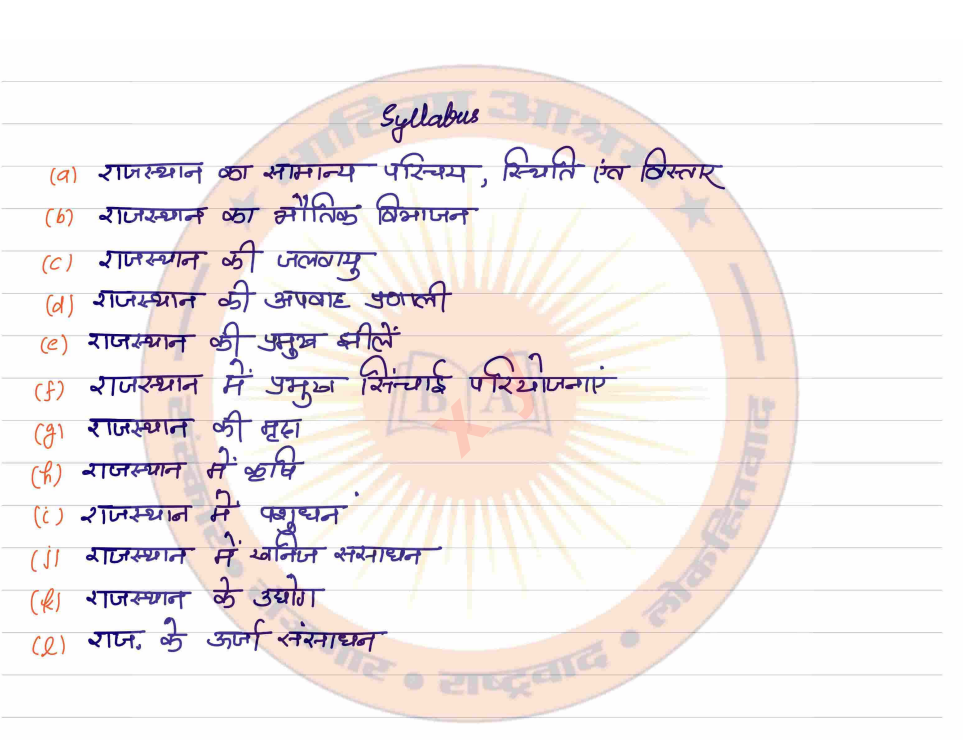 Syllabus
(a) राजस्थान का सामान्य परिचय, स्थिति एंव विस्तार
(b) राजस्थान का भौतिक विभाजन
(c) राजस्थान की जलवायु
(d) राजस्थान की अपवाह प्रणाली
(e) राजस्थान की प्रमुख झीलें
(f) राजस्थान में प्रमुख सिंचाई परियोजनाएं
(g) राजस्थान की मृदा
(h) राजस्थान में कृषि
(i) राजस्थान में पशुधन
(j) राजस्थान में खनिज संसाधन
(k) राजस्थान के उद्योग
(l) राज. के ऊर्जा संसाधन
B A
राष्ट्रवाद • लोकहितवाद